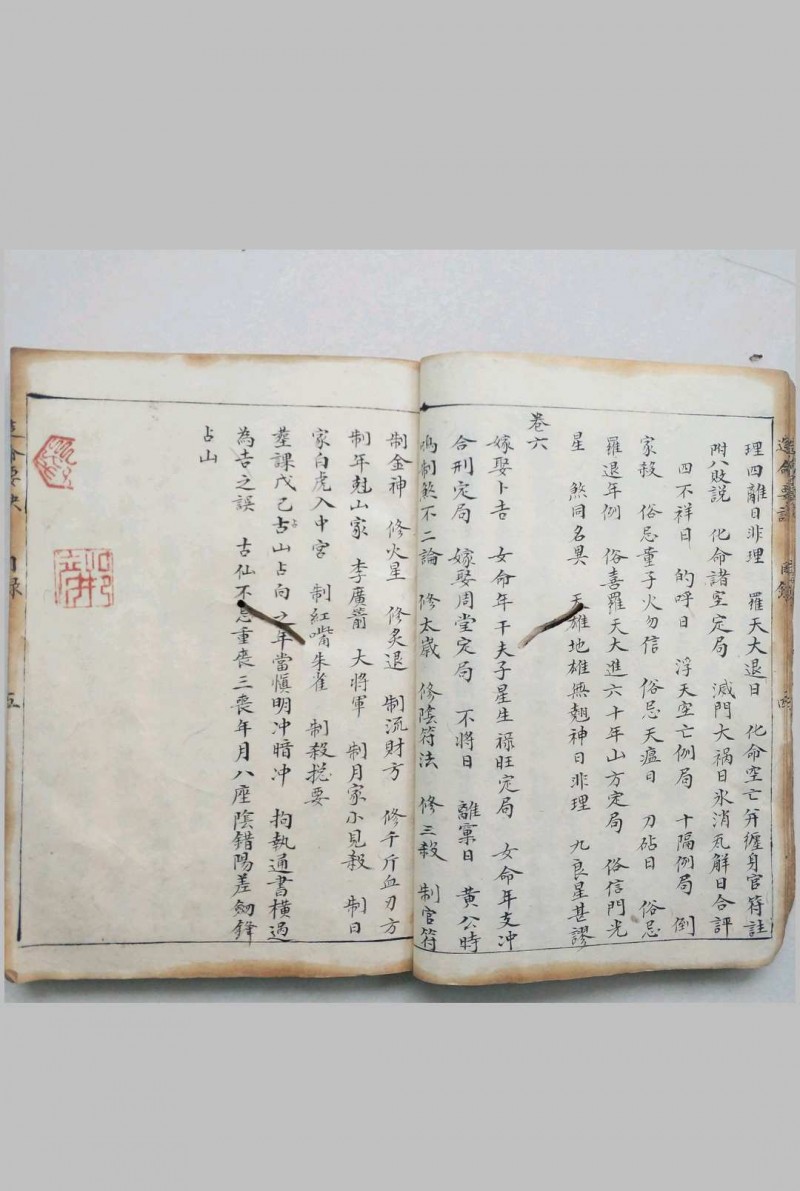 理四離日非理　羅天大退日　化命空亡弁纏身官符註
附八敗説　化命諸空定局　滅門大禍日氷消瓦解日合評
四不祥日　的呼日　浮天空亡例局　十隔例局　倒
家殺　俗忌童子火勿信　俗忌天瘟日　刀砧日　俗忌
羅退年例　俗喜羅天大進六十年山方定局　俗信門光
星　煞同名異　天雄地雄無翹神日非理　九良星甚謬
卷六
嫁娶卜吉　女命年干夫子星生祿旺定局　女命年支冲
合刑定局　嫁娶周堂定局　不將日　離窠日　黃公時
鳴制煞不二論　修太歲　修陰符法　修三殺　制官符
制金神　修火星　修炙退　制流財方　修千斤血刃方
制年尅山家　李廣箭　大將軍　制月家小見殺　制日
家白虎入中宮　制紅嘴朱雀　制殺捴要
塟課戊己古山占向之年當慎明冲暗冲　拘執通書橫過
占
為吉之誤　古仙不忌重喪三喪年月八座陰錯陽差劔鋒
占山
目錄
五